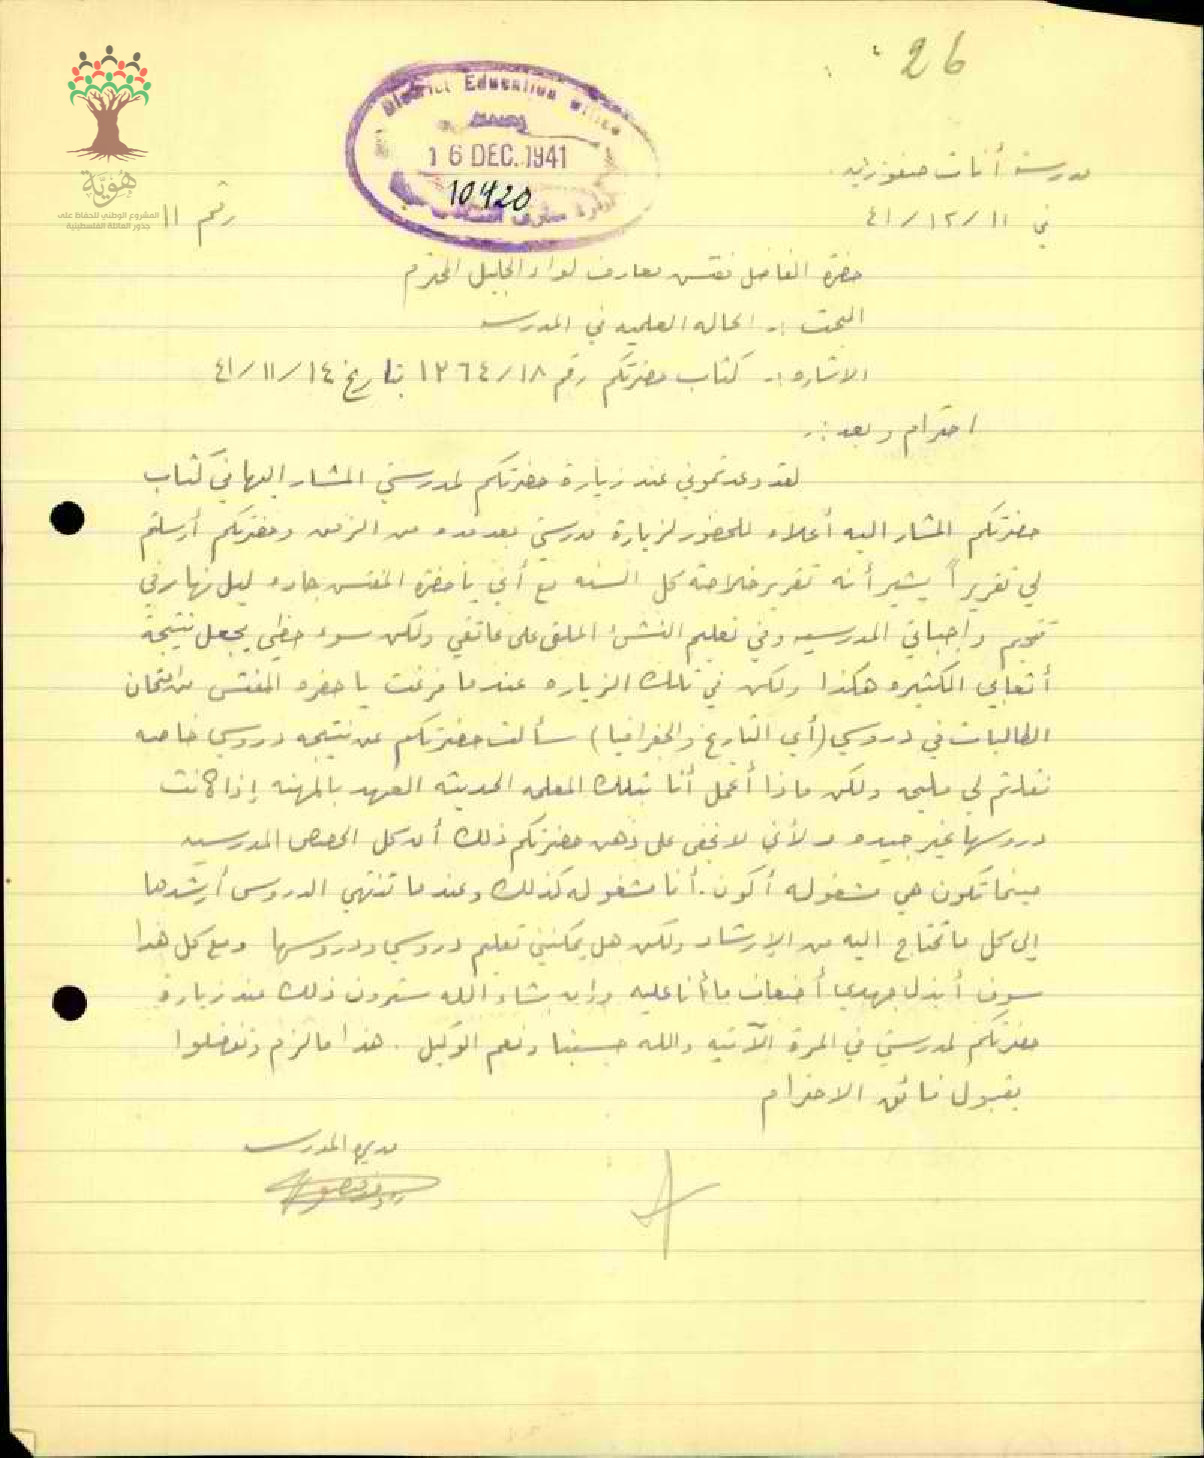 26
District Education Office
16 DEC. 1941
10420
هُوِيَّة
المشروع الوطني للحفاظ على
جذور العائلة الفلسطينية
مدرسة أناث صفورية
في ١١/١٢/٤١
رقم ١١
حضرة الفاضل مفتش معارف لواء الجليل المحترم
البحث :- الحاله العلميه في المدرسه
الاشاره :- كتاب حضرتكم رقم ١٢٦٤/١٨ بتاريخ ١٤/١١/٤١
احترام وبعد :-
لقد وعدتموني عند زيارة حضرتكم لمدرستي المشار اليها في كتاب
حضرتكم المشار اليه أعلاه للحضور لزيارة مدرستي بعد مده من الزمن وحضرتكم أرسلتم
لي تقريراً يشير أنه تقرير خلاصة كل السنه مع أني يا حضرة المفتش جاده ليل نهار في
تتميم واجباتي المدرسيه وفي تعليم النشئ الملقى على عاتقي ولكن سوء حظي يجعل نتيجة
أتعابي الكثيره هكذا ولكن في تلك الزياره عندما فرغت يا حضره المفتش من امتحان
الطالبات في دروسي (أي التاريخ والجغرافيا) سألت حضرتكم عن نتيجه دروسي خاصه
فقلتم لي مليحه ولكن ماذا أعمل أنا بتلك المعلمه الحديثه العهد بالمهنه إذا كانت
دروسها غير جيده ولأني لا يخفى على ذهن حضرتكم ذلك أن كل الحصص المدرسيه
حينما تكون هي مشغوله أكون أنا مشغوله كذلك وعندما تنتهي الدروس أرشدها
إلى كل ما تحتاج اليه من الإرشاد ولكن هل يمكنني تعليم دروسي ودروسها ومع كل هذا
سوف أبذل جهدي أضعاف ما أنا عليه وإن شاء الله سترون ذلك عند زيارة
حضرتكم لمدرستي في المرة الآتيه والله حسبنا ونعم الوكيل . هذا ما لزم وتفضلوا
بقبول فائق الاحترام
مديرة المدرسه